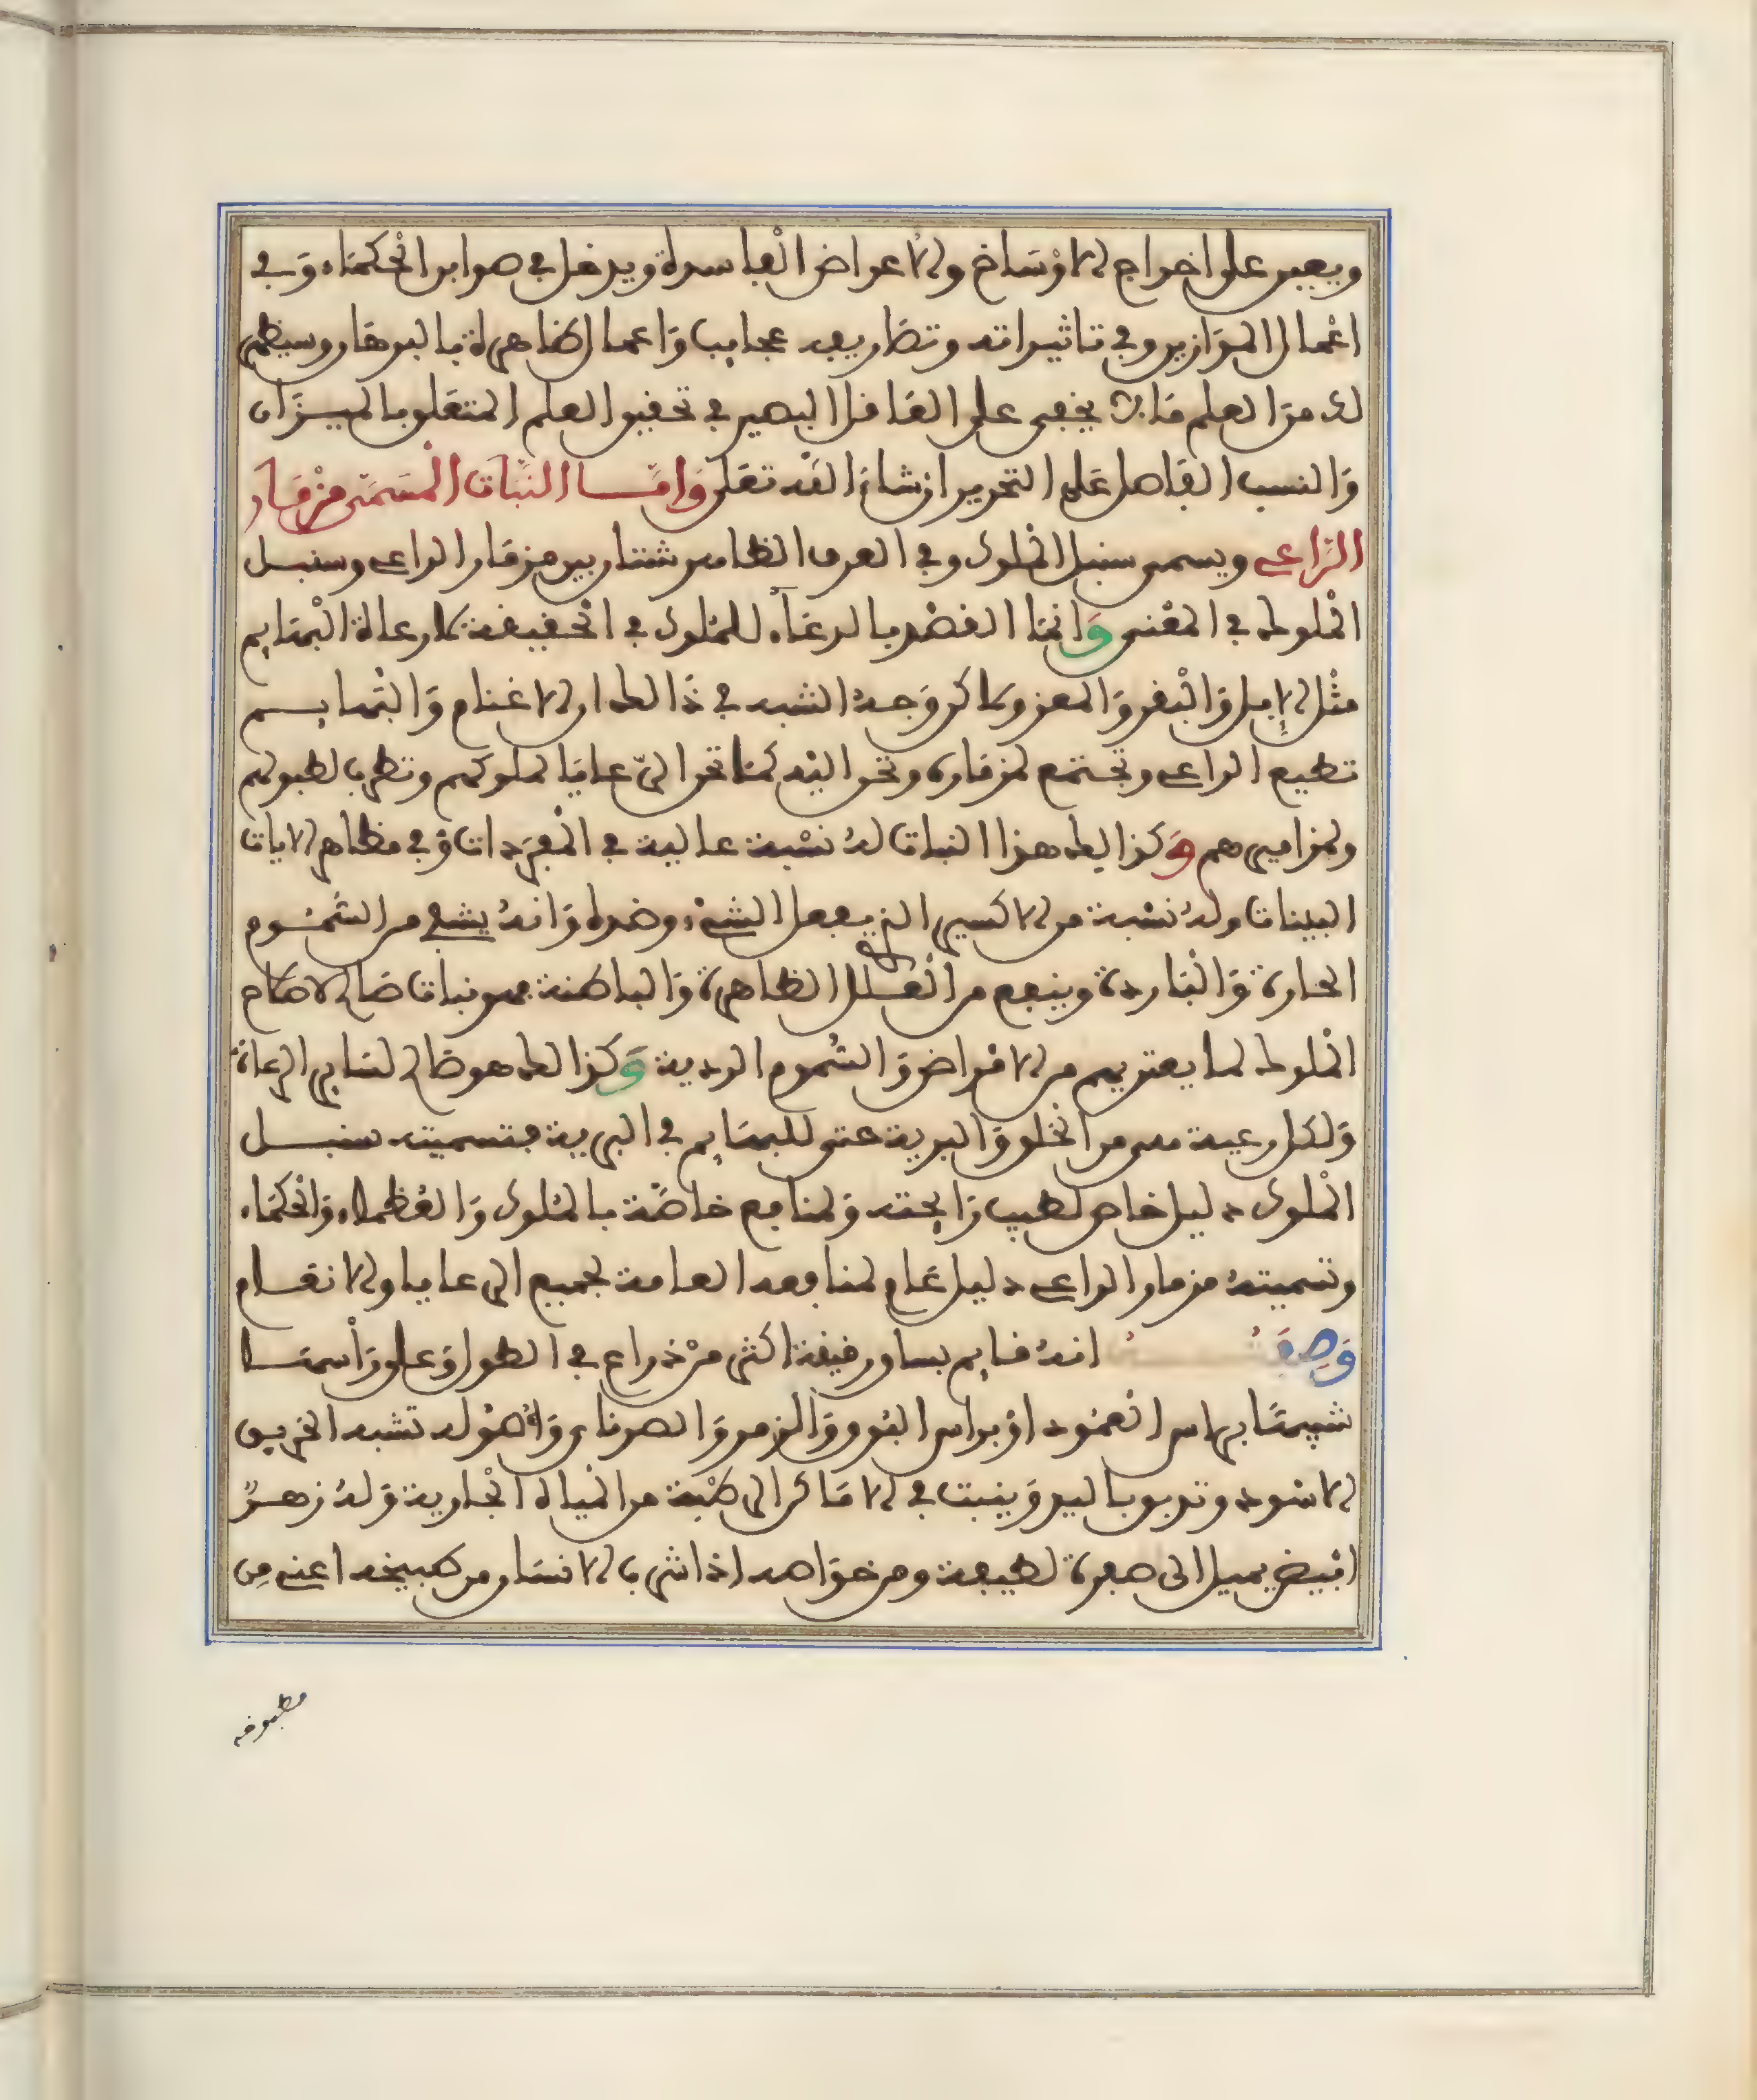 ويعين على اخراج الاوساخ والاعراض الفاسدة ويدخل في صوابن الحكماء وفي
اعمال الموازين وفي تاثيراته وتصاريفه عجايب واعمال ظاهرة بالبرهان وسيظهر
لك من العلم ما لا يخفى على العاقل البصير في تحقيق العلم المتعلق بالميزان
والنسب الفاصل على التحرير ان شاء الله تعلى واما النبات المسمى مزمار
الراعي ويسمى سنبل الملوك وفي العرف الظاهر شتان بين مزمار الراعي وسنبل
الملوك في المعنى وانما القصد بالرعاء للملوك في الحقيقة كارعاة البهايم
مثل الابل والبقر والمعز ولاكن وجه الشبه في ذالك ان الاغنام والبهايم
تطيع الراعي وتجتمع لمزماره وتحن اليه كما تحن الرعايا لملوكهم وتطرب لطبولهم
ولمزاميرهم وكذالك هذا النبات له نسبة عالية في المفردات وفي مظاهر الايات
البينات وله نسبة من الاكسير الذي يفعل الشيء وضده وانه يشفي من السموم
الحارة والباردة وينفع من العلل الظاهرة والباطنة فهو نبات صالح لامام
الملوك لما يعتريهم من الامراض والسموم الردية وكذالك هو صالح لساير الرعاة
ولكل رعية من الخلق والبرية حتى للبهايم في البرية فتسميته سنبل
الملوك دليل خاص لطيب رايحته ولمنافع خاصة بالملوك والعظماء والحكماء
وتسميته مزمار الراعي دليل عام لمنافعه العامة لجميع الرعايا والانعام
وصفته انه قايم بساق رقيقة اكثر من ذراع في الطول وعلى راسها
شبيها براس العمود او براس البوق والزمر والصرناي واصوله تشبه الخربق
الاسود وتدبق باليد وينبت في الاماكن الرطبة من المياه الجارية وله زهر
ابيض يميل الى صفرة لطيفة ومن خواصه اذا شرب الانسان من طبيخه اعني من
مطبوخه